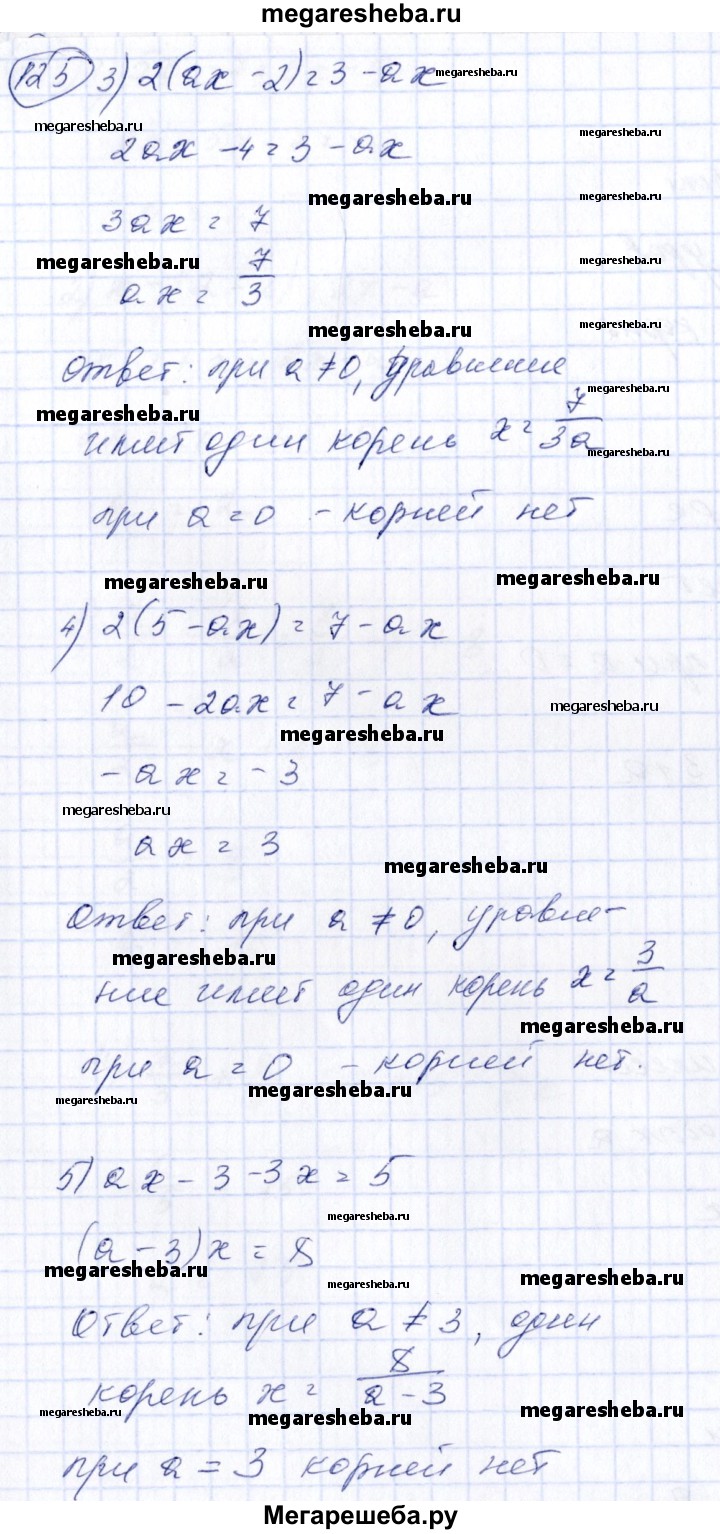 megaresheba.ru
125 3) 2(ax - 2) = 3 - ax megaresheba.ru
megaresheba.ru megaresheba.ru
2ax - 4 = 3 - ax
megaresheba.ru megaresheba.ru
3ax = 7
megaresheba.ru
ax = 7/3
megaresheba.ru
Ответ: при a ≠ 0, уравнение
megaresheba.ru
megaresheba.ru
имеет один корень x = 7/3a
megaresheba.ru
при a = 0 - корней нет
megaresheba.ru megaresheba.ru
4) 2(5 - ax) = 7 - ax
10 - 2ax = 7 - ax megaresheba.ru
megaresheba.ru
- ax = - 3
megaresheba.ru
ax = 3
megaresheba.ru
Ответ: при a ≠ 0, уравне-
megaresheba.ru
ние имеет один корень x = 3/a
megaresheba.ru
при a = 0 - корней нет.
megaresheba.ru megaresheba.ru
5) ax - 3 - 3x = 5
megaresheba.ru
(a - 3)x = 8
megaresheba.ru megaresheba.ru megaresheba.ru
Ответ: при a ≠ 3, один
корень x = 8/a - 3
megaresheba.ru megaresheba.ru megaresheba.ru
при a = 3 корней нет
Мегарешеба.ру